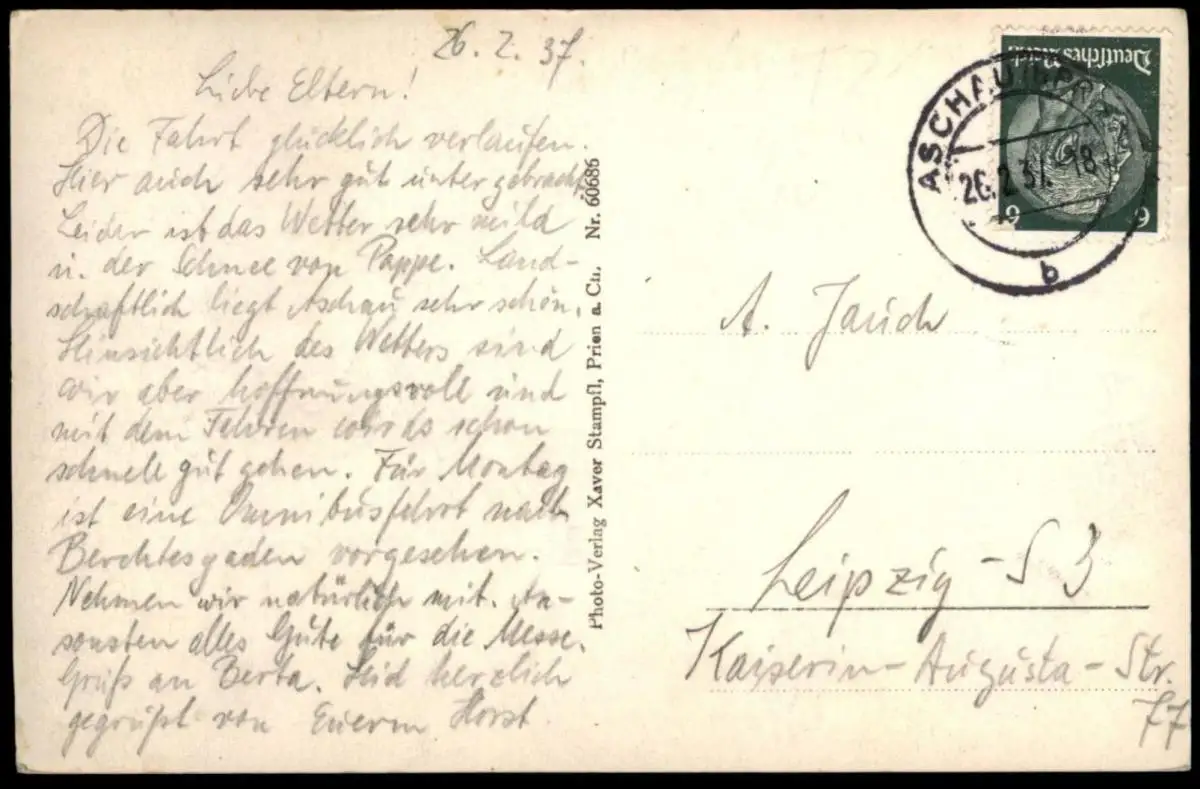 26. 2. 37.
Liebe Eltern!
Die Fahrt glücklich verlaufen.
Hier auch sehr gut untergebracht.
Leider ist das Wetter sehr mild
u. der Schnee von Pappe. Land-
schaftlich liegt Aschau sehr schön.
Hinsichtlich des Wetters sind
wir aber hoffnungsvoll und
mit dem Fahren wirds schon
schnell gut gehen. Für Montag
ist eine Omnibusfahrt nach
Berchtesgaden vorgesehen.
Nehmen wir natürlich mit. An-
sonsten alles Gute für die Messe.
Gruß an Berta. Seid herzlich
gegrüßt von Euerm Horst
Photo-Verlag Xaver Stampfl, Prien a. Ch. Nr. 60686
Deutsches Reich
6 6
ASCHAU
26.2.37. 18
b
A. Jauch
Leipzig - S 3
Kaiserin-Augusta-Str.
77